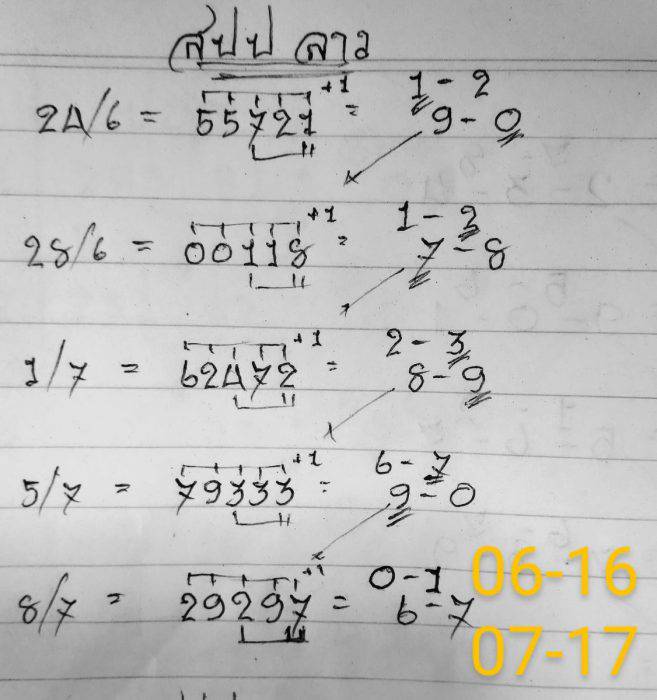 สปป ลาว
24/6 = 55721 +1 = 1 - 2
9 - 0
28/6 = 00118 +1 = 1 - 2
7 - 8
1/7 = 62472 +1 = 2 - 3
8 - 9
5/7 = 79333 +1 = 6 - 7
9 - 0
8/7 = 29297 +1 = 0 - 1
6 - 7
06-16
07-17